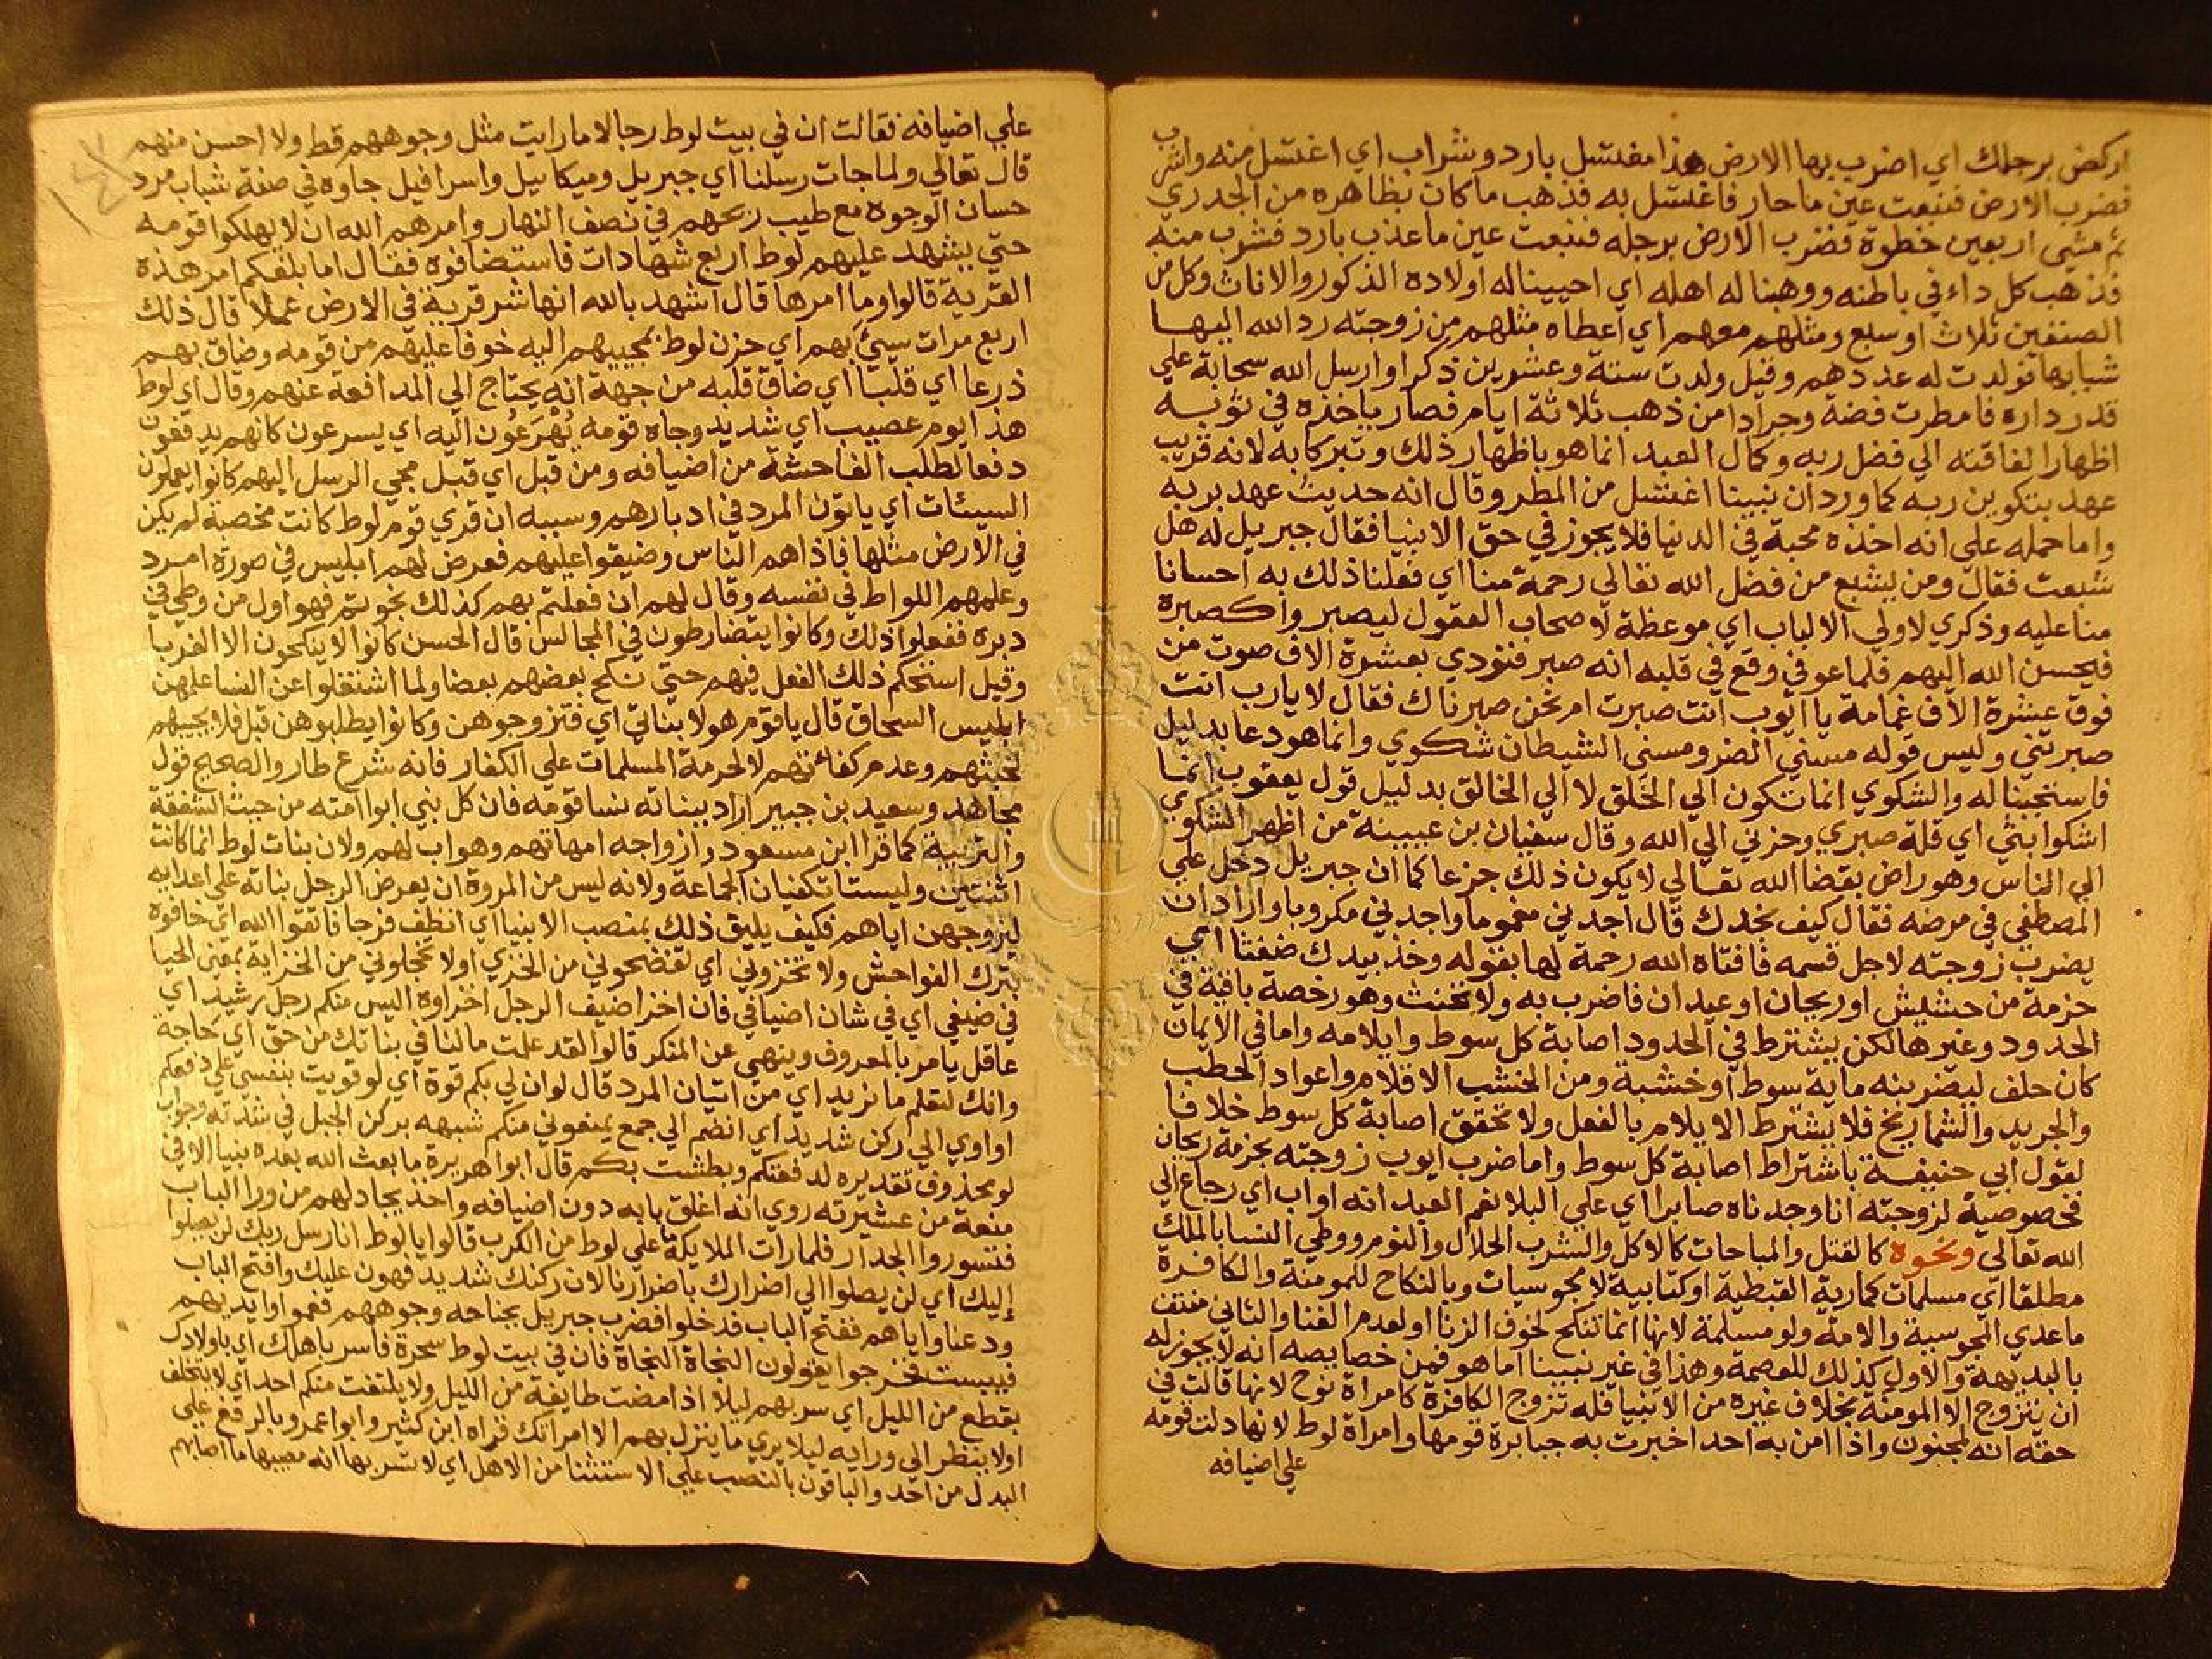 اركض برجلك اي اضرب بها الارض هذا مغتسل بارد وشراب اي اغتسل منه واشرب
فضرب الارض فنبعت عين ماحار فاغتسل به فذهب ماكان بظاهره من الجدري
ثم مشي اربعين خطوة فضرب الارض برجله فنبعت عين ماعذب بارد فشرب منه
فذهب كل داء في باطنه ووهبنا له اهله اي احييناله اولاده الذكور والاناث وكل من
الصنفين ثلاث اوسبع ومثلهم معهم اي اعطاه مثلهم من زوجته رد الله اليها
شبابها فولدت له عددهم وقيل ولدت ستة وعشرين ذكرا وارسل الله سحابة علي
قدر داره فامطرت فضة وجرادا من ذهب ثلاثة ايام فصار ياخذه في ثوبه
اظهارا لفاقته الي فضل ربه وكمال العبد انما هو باظهار ذلك وتبركا به لانه قريب
عهد بتكوين ربه كما ورد ان نبينا اغتسل من المطر وقال انه حديث عهد بربه
واما حمله علي انه اخذه محبة في الدنيا فلا يجوز في حق الانبيا فقال جبريل له هل
شبعت فقال ومن يشبع من فضل الله تعالي رحمة منا اي فعلنا ذلك به احسانا
منا عليه وذكري لاولي الالباب اي موعظة لاصحاب العقول ليصبروا كصبره
فيحسن الله اليهم فلما عوفي وقع في قلبه انه صبر فنودي بعشرة الاف صوت من
فوق عشرة الاف غمامة يا ايوب انت صبرت ام نحن صبرناك فقال لا يارب انت
صبرتني وليس قوله مسني الضر ومسني الشيطان شكوي وانما هو دعا بدليل
فاستجبنا له والشكوي انما تكون الي الخلق لا الي الخالق بدليل قول يعقوب انما
اشكوا بثي اي قلة صبري وحزني الي الله وقال سفيان بن عيينة من اظهر الشكوي
الي الناس وهو راض بقضا الله تعالي لا يكون ذلك جزعا كما ان جبريل دخل علي
المصطفي في مرضه فقال كيف نجدك قال اجدني مغموما واجدني مكروبا واراد ان
يضرب زوجته لاجل قسمه فافتاه الله رحمة لها بقوله وخذ بيدك ضغثا اي
حزمة من حشيش او ريحان او عيدان فاضرب به ولا تحنث وهو رخصة باقية في
الحدود وغيرها لكن يشترط في الحدود اصابة كل سوط وايلامه واما في الايمان
كان حلف ليضربنه ماية سوط او خشبة ومن الخشب الاقلام واعواد الحطب
والجريد والشماريخ فلا يشترط الايلام بالفعل ولا تحقق اصابة كل سوط خلافا
لقول ابي حنيفة باشتراط اصابة كل سوط واما ضرب ايوب زوجته بحزمة ريحان
فخصوصية لزوجته انا وجدناه صابرا اي علي البلا نعم العبد انه اواب اي رجاع الي
الله تعالي ونحوه كالقتل والمباحات كالاكل والشرب الحلال والنوم ووطي النسا بالملك
مطلقا اي مسلمات كمارية القبطية او كتابية لا مجوسيات وبالنكاح للمومنة والكافرة
ماعدي المجوسية والامة ولو مسلمة لانها انما تنكح لخوف الزنا او لعدم الغنا والثاني منتف
بالبديهة والاول كذلك للعصمة وهذا في غير نبينا اما هو فمن خصايصه انه لا يجوز له
ان يتزوج الا المومنة بخلاف غيره من الانبيا فله تزوج الكافرة كامراة نوح لانها قالت في
حقه انه لمجنون واذا امن به احد اخبرت به جبابرة قومها وامراة لوط لانها دلت قومه
علي اضيافه
علي اضيافه فقالت ان في بيت لوط رجالا ما رايت مثل وجوههم قط ولا احسن منهم
قال تعالي ولما جات رسلنا اي جبريل وميكاييل واسرافيل جاوه في صفة شباب مرد
حسان الوجوه مع طيب ريحهم في نصف النهار وامرهم الله ان لا يهلكوا قومه
حتي يشهد عليهم لوط اربع شهادات فاستضافوه فقال اما بلغكم امر هذه
القرية قالوا وما امرها قال اشهد بالله انها شر قرية في الارض عملا قال ذلك
اربع مرات سيئ بهم اي حزن لوط بمجييهم اليه خوفا عليهم من قومه وضاق بهم
ذرعا اي قلبا اي ضاق قلبه من جهة انه يحتاج الي المدافعة عنهم وقال اي لوط
هذا يوم عصيب اي شديد وجاه قومه يُهْرَعُون اليه اي يسرعون كانهم يدفعون
دفعا لطلب الفاحشة من اضيافه ومن قبل اي قبل مجي الرسل اليهم كانوا يعملون
السيئات اي ياتون المرد في ادبارهم وسببه ان قري قوم لوط كانت مخصبة لم يكن
في الارض مثلها فاذاهم الناس وضيقوا عليهم فعرض لهم ابليس في صورة امرد
وعلمهم اللواط في نفسه وقال لهم ان فعلتم بهم كذلك نجوتم فهو اول من وطي في
دبره ففعلوا ذلك وكانوا يتضارطون في المجالس قال الحسن كانوا لا ينكحون الا الغربا
وقيل استحكم ذلك الفعل فيهم حتي نكح بعضهم بعضا ولما اشتغلوا عن النسا علمهن
ابليس السحاق قال ياقوم هولا بناتي اي فتزوجوهن وكانوا يطلبوهن قبل فلا يجيبهم
لخبثهم وعدم كفائتهم لا لحرمة المسلمات علي الكفار فانه شرع طار والصحيح قول
مجاهد وسعيد بن جبير اراد ببناته نسا قومه فان كل نبي ابوا امته من حيث الشفقة
والتربية كما قرا ابن مسعود وازواجه امهاتهم وهو اب لهم ولان بنات لوط انما كانت
اثنتين وليستا تكفيان الجماعة ولانه ليس من المروة ان يعرض الرجل بناته علي اعدايه
ليزوجهن اياهم فكيف يليق ذلك بمنصب الانبيا اي انظف فرجا فاتقوا الله اي خافوه
بترك الفواحش ولا تخزوني اي تفضحوني من الخزي اولا تخجلوني من الخزاية بمعني الحيا
في ضيفي اي في شان اضيافي فان اخزا ضيف الرجل اخزاوه اليس منكم رجل رشيد اي
عاقل يامر بالمعروف وينهي عن المنكر قالوا لقد علمت مالنا في بناتك من حق اي حاجة
وانك لتعلم ما نريد اي من اتيان المرد قال لو ان لي بكم قوة اي لو قويت بنفسي علي دفعكم
او اوي الي ركن شديد اي انضم الي جمع يمنعوني منكم شبهه بركن الجبل في شدته وجواب
لو محذوف تقديره لدفعتكم وبطشت بكم قال ابوا هريرة ما بعث الله بعده نبيا الا في
منعة من عشيرته روي انه اغلق بابه دون اضيافه واخذ يجادلهم من ورا الباب
فتسوروا الجدار فلما رات الملايكة ما علي لوط من الكرب قالوا يا لوط انا رسل ربك لن يصلوا
إليك اي لن يصلوا الي اضرارك باضرارنا لان ركنك شديد فهون عليك وافتح الباب
ودعنا واياهم ففتح الباب فدخلوا فضرب جبريل بجناحه وجوههم فعموا وايديهم
فيبست فخرجوا يقولون النجاة النجاة فان في بيت لوط سحرة فاسر باهلك اي باولادك
بقطع من الليل اي سر بهم ليلا اذا مضت طايفة من الليل ولا يلتفت منكم احد اي لا يتخلف
اولا ينظر الي ورايه ليلا يري ما ينزل بهم الا امراتك قراه ابن كثير وابوا عمرو بالرفع علي
البدل من احد والباقون بالنصب علي الاستثنا من الاهل اي لا تسر بها انه مصيبها ما اصابهم